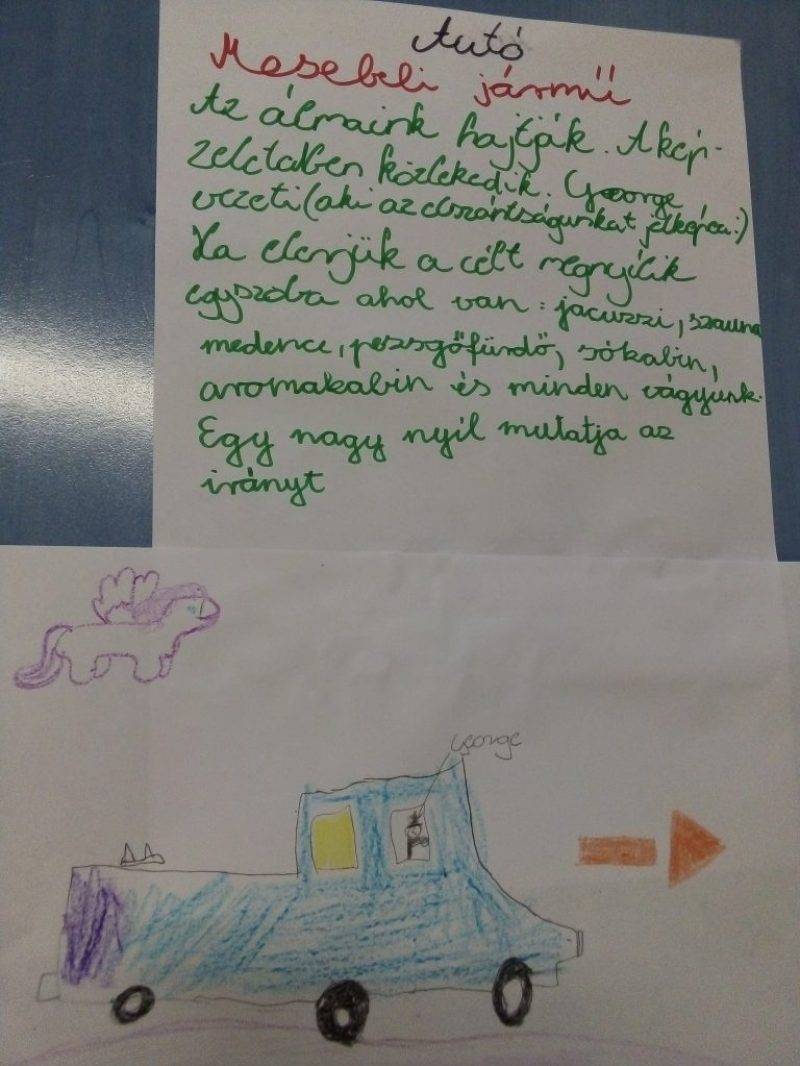 Autó
Mesebeli jármű
Az álmaink hajtják. A kép-
zeletben közlekedik. George
vezeti (aki az elszántságunkat jelképezi)
Ha elérjük a célt megnyílik
egy szoba ahol van: jacuzzi, szauna
medence, pezsgőfürdő, sókabin,
aromakabin és minden vágyunk.
Egy nagy nyíl mutatja az
irányt
George